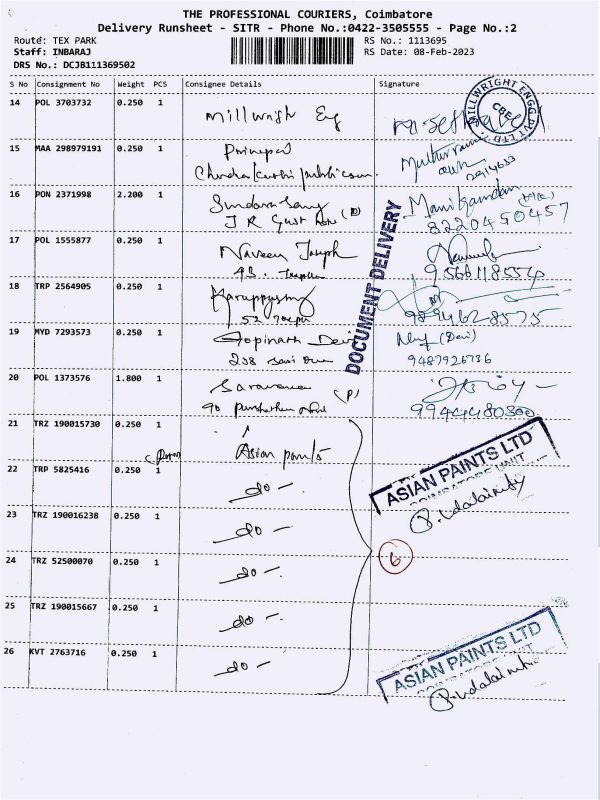 THE PROFESSIONAL COURIERS, Coimbatore
Delivery Runsheet - SITR - Phone No.:0422-3505555 - Page No.:2
Route: TEX PARK
RS No.: 1113695
Staff: INBARAJ
RS Date: 08-Feb-2023
DRS No.: DCJB111369502
S No Consignment No Weight PCS Consignee Details Signature
14 POL 3703732 0.250 1 Millwright Eg
MILLWRIGHT ENGG PVT LTD
CBE
15 MAA 298979191 0.250 1 Principal
16 PON 2371998 2.200 1
Manikandan
8220450457
17 POL 1555877 0.250 1 Naveen Joseph
9566118554
18 TRP 2564905 0.250 1 Karuppusamy
9894628575
19 MYD 7293573 0.250 1 Gopinath Devi
(Devi)
208
9487926736
DOCUMENT DELIVERY
20 POL 1373576 1.800 1 Saravana
(P)
90
9944480300
21 TRZ 190015730 0.250 1 Asian paints
ASIAN PAINTS LTD
22 TRP 5825416 0.250 1 - do -
23 TRZ 190016238 0.250 1 - do -
6
24 TRZ 52500070 0.250 1 - do -
25 TRZ 190015667 0.250 1 - do -
26 KVT 2763716 0.250 1 - do -
ASIAN PAINTS LTD